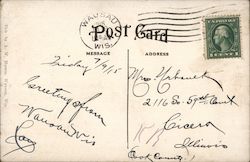 WAUSAU
WIS.
Post Card
MESSAGE
ADDRESS
Friday 7/9/15
Greeting from
Wausau Wis
Mrs
2116 So 59th Court
Cicero
Illinois
Cook County